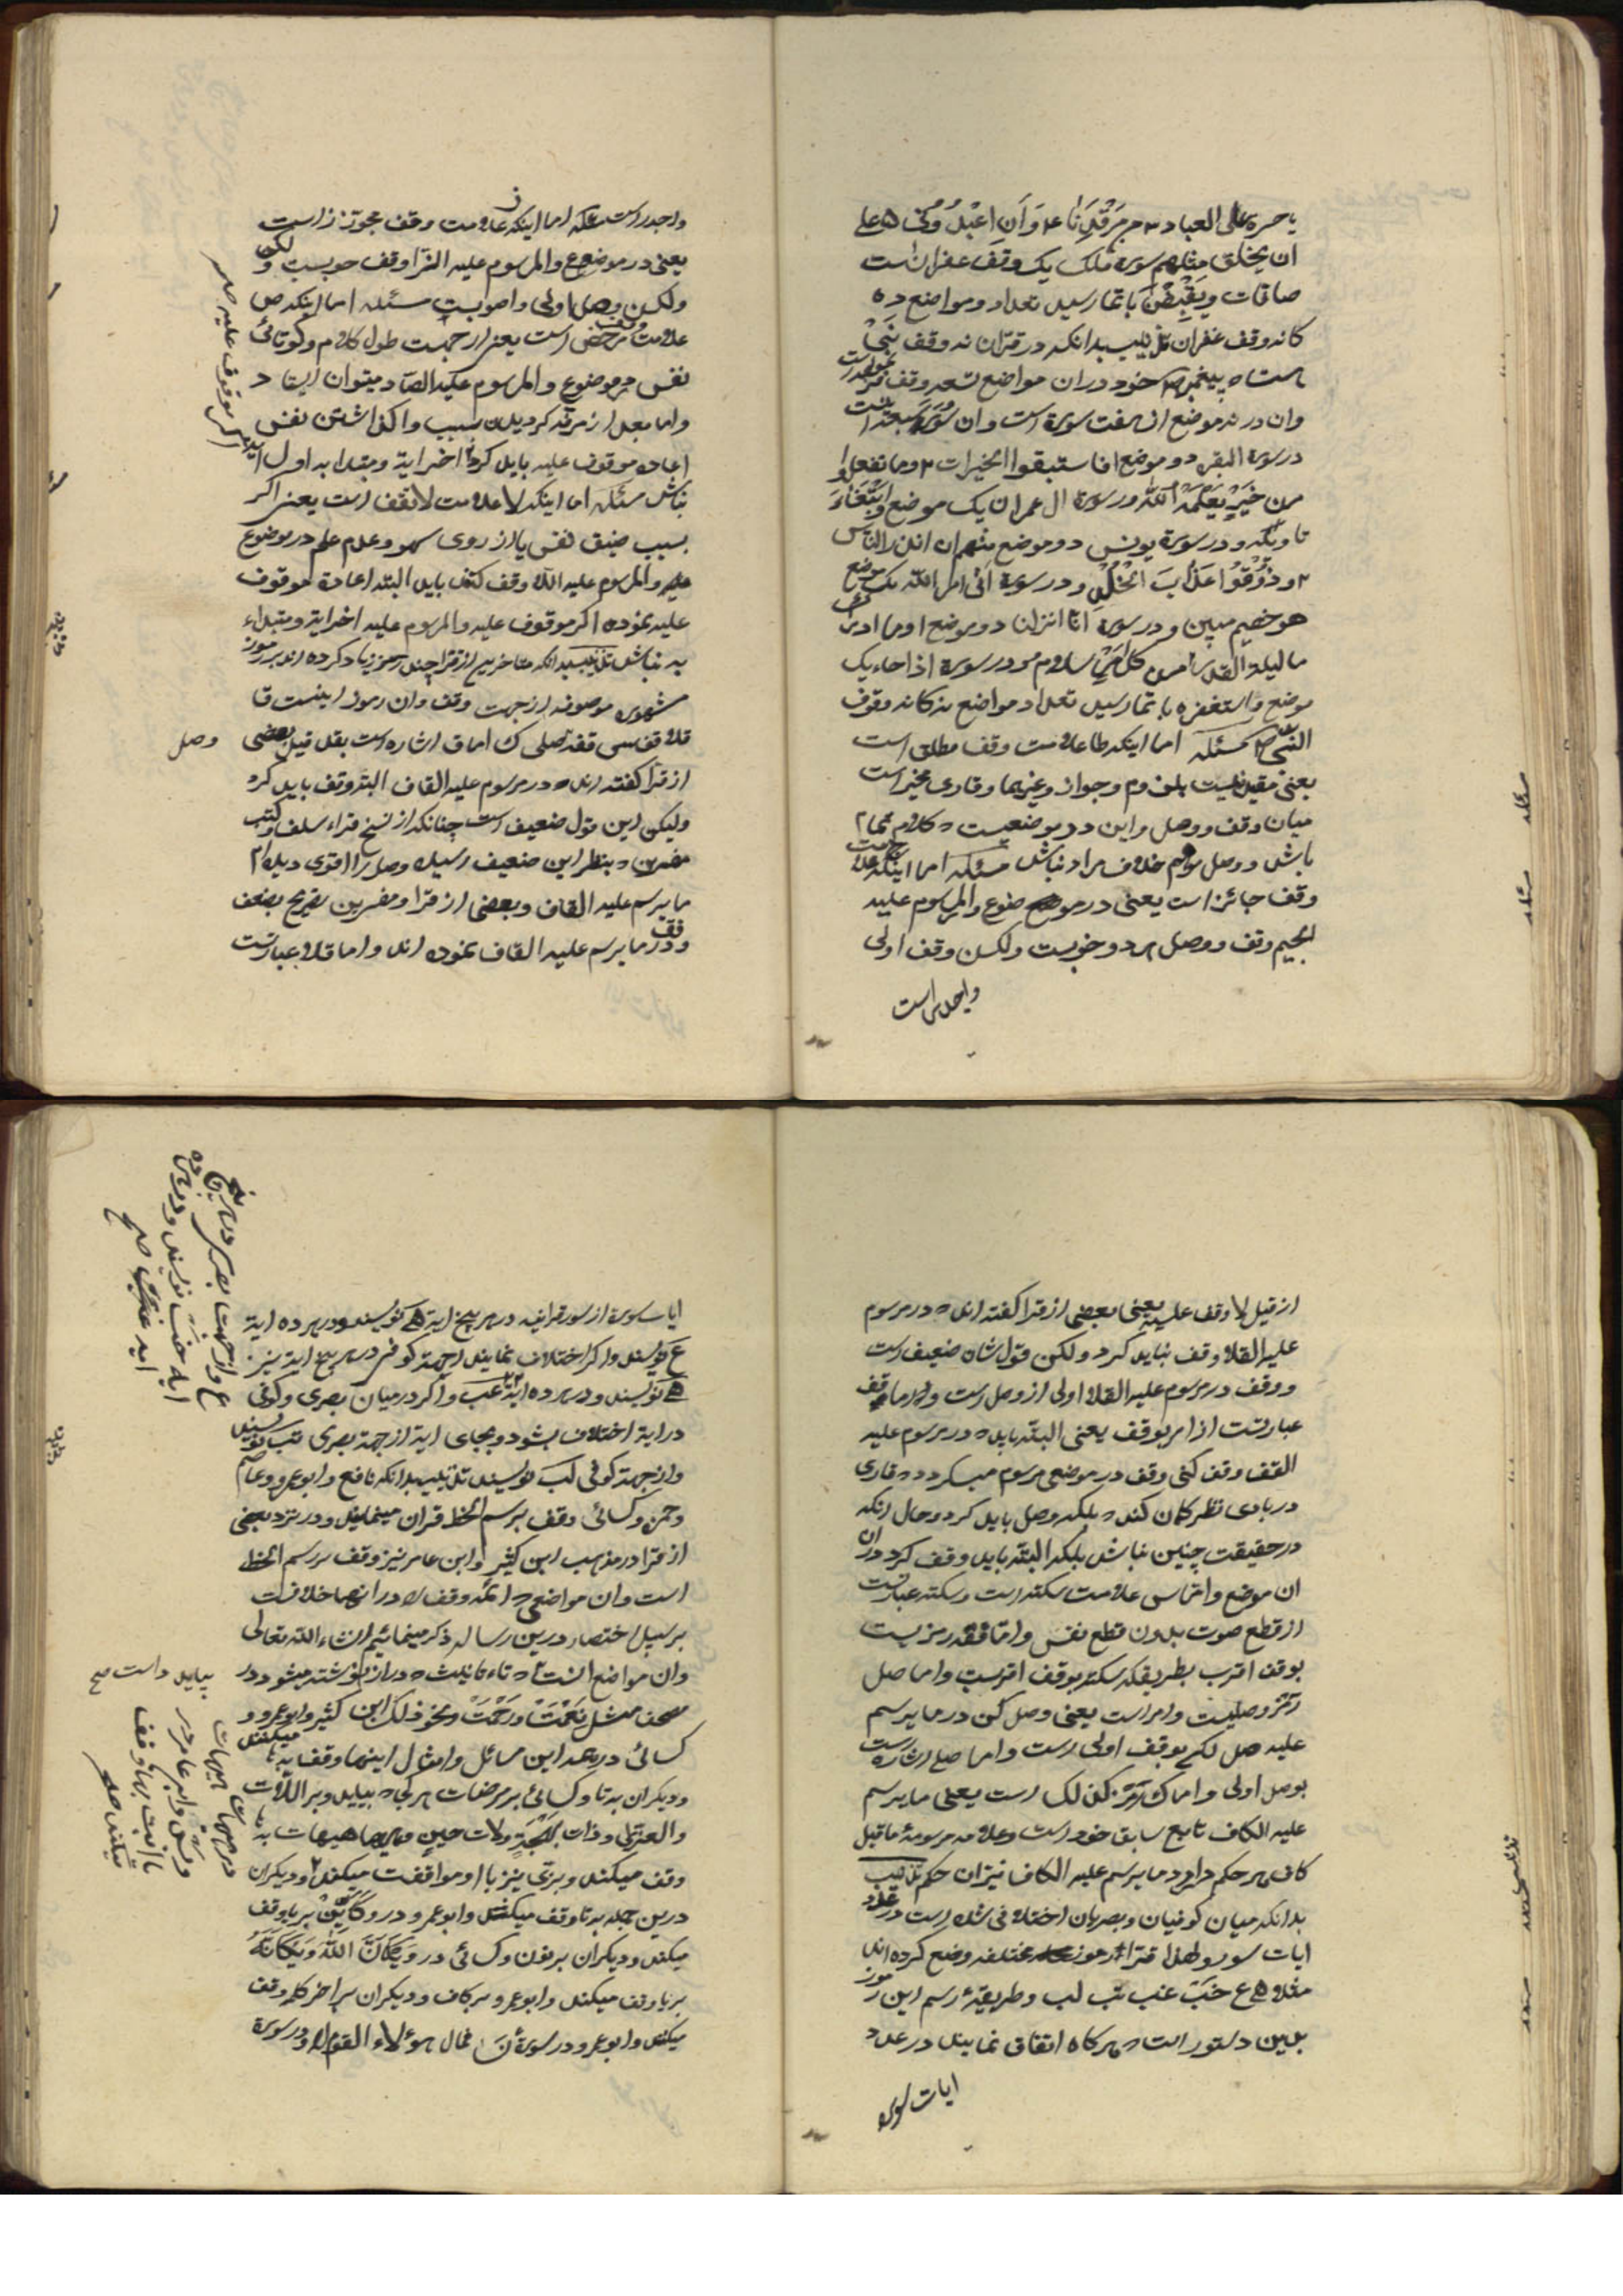 یا حسرة علی العباد ۳ من مرقدنا ۴ و أن اعبدونی ۵ علی
ان یخلق مثلهم سورهٔ ملک یک وقف غفران است
صافات و یقبضن باتمار سید تعداد و مواضع ده
کانه وقف غفران تذییب بدانکه در قرآن نه وقف نبی
است که پیغمبر ص خود در آن مواضع تسعه وقف فرموده است
و آن در نه موضع از هفت سوره است و آن سور سبعه اینست
در سوره البقره دو موضع ا فاستبقوا الخیرات ۲ و ما تفعلوا
من خیر یعلمه الله و در سورة ال عمران یک موضع و ابتغاء
تاویله و در سورة یونس دو موضع منهم ان انذر الناس
۲ و ذوقوا عذاب الخلد و در سورة اتی امر الله یک موضع
هو خصیم مبین و در سورة انا انزلنا دو موضع ا و ما ادریک
ما لیلة القدر من کل امر سلام و در سورة اذا جاء یک
موضع و استغفره باتمار سید تعداد مواضع نه کانه وقوف
النبی ص مسئله اما اینکه ط علامت وقف مطلق است
یعنی مقید نیست بلزوم و جواز و غیرهما و قاری مخیر است
میان وقف و وصل و این در موضعیست که کلام تمام
باشد و وصل موهم خلاف مراد نباشد مسئله اما اینکه ج علامت
وقف جائز است یعنی در موضوع و المرسوم علیه
الجیم وقف و وصل هر دو خوبست ولکن وقف اولی
و اجدر است
و اجدر است مسئله اما اینکه ز علامت وقف مجوز است
یعنی در موضوع و المرسوم علیه الزا وقف خوبست
ولکن وصل اولی و اصوبست مسئله اما اینکه ص
علامت وقف مرخص است یعنی از جهت طول کلام و کوتائی
نفس در موضوع و المرسوم علیه الصاد میتوان ایستاد
و اما بعد از مرتد کردیدن سبب و اکذاشتن نفس
اعاده موقوف علیه باید کرد اخر ایة و مبتدا به اول ایة
نباشد مسئله اما اینکه لا علامت لا تقف است یعنی اکر
بسبب ضیق نفس یا از روی سهو و عدم علم در موضوع
علیه و المرسوم علیه اللا وقف کند باید البته اعاده موقوف
علیه نموده اکر موقوف علیه و المرسوم علیه اخر ایة و مبتداء
به نباشد تذییب بدانکه متاخرین از قرا چند رموز زیاد کرده اند بر رموز
مشهوره موصوفه از جهت وقف و آن رموز اینست ق
قلا قف س قفه صلی ک اما ق اشاره است بقد قیل بعضی
از قرا کفته اند که در مرسوم علیه القاف البته وقف باید کرد
ولیکن این قول ضعیف است چنانکه از نسخ قراء سلف و کتب
مفسرین که بنظر این ضعیف رسیده وصل را اقوی دیده ام
ما یرسم علیه القاف و بعضی از قرا و مفسرین تصریح بضعف
وقف در ما یرسم علیه القاف نموده اند و اما قلا عبارتست
وصل
اکر موقوف علیه صح
از قیل لا وقف علیه یعنی بعضی از قرا کفته اند که در مرسوم
علیه القلا وقف نباید کرد ولکن قولشان ضعیف است
و وقف در مرسوم علیه القلا اولی از وصل است و اما قف
عبارتست از امر بوقف یعنی البته باید که در مرسوم علیه
القف وقف کنی وقف در موضعی مرسوم میکردد که قاری
در بادی نظر کمان کند که بلکه وصل باید کرد و حال انکه
در حقیقت چنین نباشد بلکه البته باید وقف کرد در ان
ان موضع و اما س علامت سکته است و سکته عبارتست
از قطع صوت بدون قطع نفس و اما قفه رمزیست
بوقف اقرب بطریقکه سکته بوقف اقربست و اما صل
رمز وصلیست و امر است یعنی وصل کن در ما یرسم
علیه صل لکن بوقف اولی است و اما صلی اشاره است
بوصل اولی و اما ک رمز کذلک است یعنی ما یرسم
علیه الکاف تابع سابق خود است و علامه مرسومهٔ ما قبل
کاف هر حکم دارد ما یرسم علیه الکاف نیز آن حکم تذییب
بدانکه میان کوفیان و بصریان اختلافی شده است در عدد
ایات سور و لهذا قراء رموز مختلفه وضع کرده اند
مثلا ه ع خب عب تب لب و طریقهٔ رسم این رموز
بدین دستور است که هر کاه اتفاق نمایند در عدد
ایات سوره
ایات سوره از سور قرانیه در هر پنج ایة ه نویسند و در هر ده ایة
ع نویسند و اکر اختلاف نمایند از جهة کوفی در هر پنج ایة نیز
ه نویسند و در هر ده ایة عب و اکر در میان بصری و کوفی
در ایة اختلاف بشود و بجای ایة از جهة بصری تب نویسند
و از جهة کوفی لب نویسند تذییب بدانکه نافع و ابو عمرو و عاصم
و حمزه و کسائی وقف برسم الخط قران مینمایند و در نزد بعضی
از قرا در مذهب ابن کثیر و ابن عامر نیز وقف بر رسم الخط
است و آن مواضعی که ائمه وقف را در انها خلافست
بر سبیل اختصار درین رساله ذکر مینمائیم انشاء الله تعالی
و ان مواضع انست که تاء تانیث که دراز نوشته میشود در
مصحف مثل نعمت و رحمت و نحو ذلک ابن کثیر و ابو عمرو و
کسائی در همه این مسائل و امثال اینها وقف به ها میکنند
و دیکران به تا و کسائی بر مرضات هر کجا که بیاید و بر اللات
و العزی و ذات بهجة و لات حین و هیهات هیهات به ها
وقف میکند و بزی نیز با او موافقت میکند و دیکران
درین جمله به تا وقف میکنند و ابو عمرو در و کاین بر یا وقف
میکند و دیکران بر نون و کسائی در ویکان الله و یکانه
بر یا وقف میکند و ابو عمرو بر کاف و دیکران بر اخر کلمه وقف
میکنند و ابو عمرو در سورهٔ ن فمال هؤلاء القوم و در سورة
بیاید داست صح